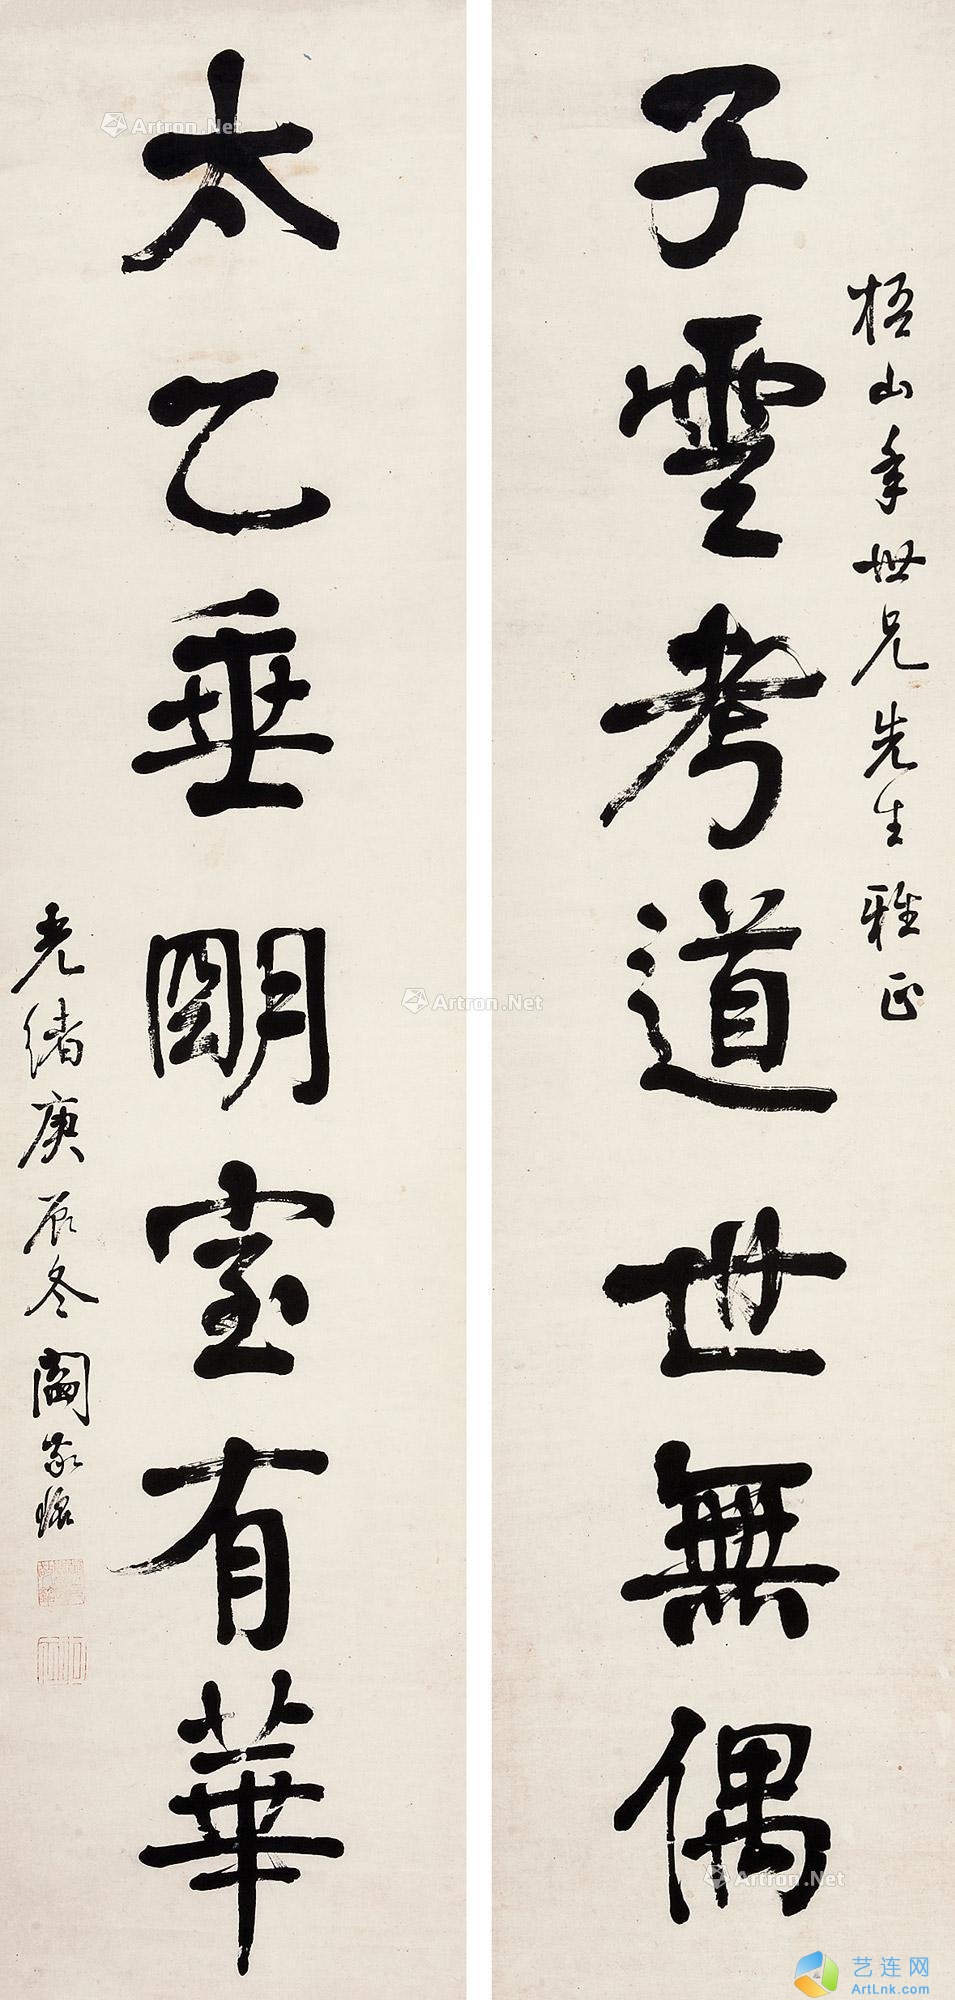 梧山年世兄先生雅正
子雲考道世無偶
太乙垂朙室有華
光緒庚辰冬閻敬銘
Artron.Net
Artron.Net
Artron.Net
艺连网
ArtLnk.com